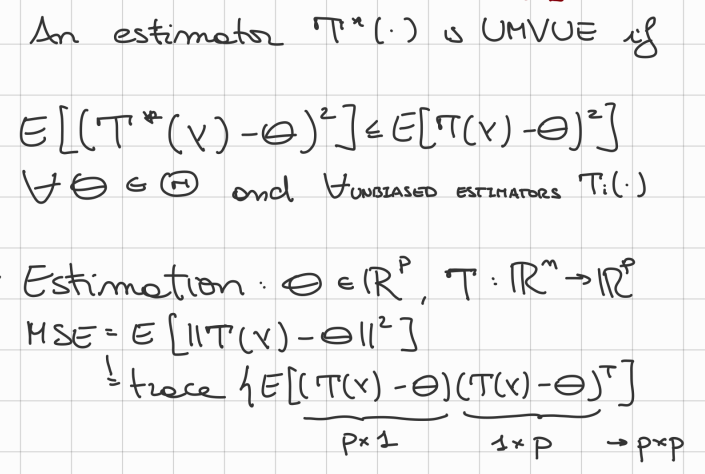 An estimator T*(·) is UMVUE if
E[(T*(Y)-Θ)²] ≤ E[T(Y)-Θ)²]
∀ Θ ∈ Ⓗ and ∀ UNBIASED ESTIMATORS Ti(·)
Estimation: Θ ∈ ℝᵖ, T: ℝⁿ → ℝᵖ
MSE = E [||T(Y)-Θ||²]
!
= trace {E[(T(Y)-Θ)(T(Y)-Θ)ᵀ]
p×1 1×p → p×p